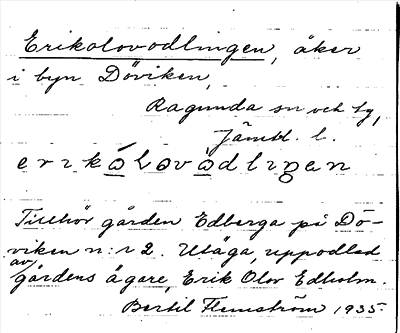 Erikolovodlingen, åker
i byn Döviken,
Ragunda sn och tg,
Jämtl. l.
erikòlovòdlıŋen
Tillhör gården Edberga på Dö-
viken n:r 2. Utäga, uppodlad
av gårdens ägare, Erik Olov Edholm.
Bertil Flemström 1935.